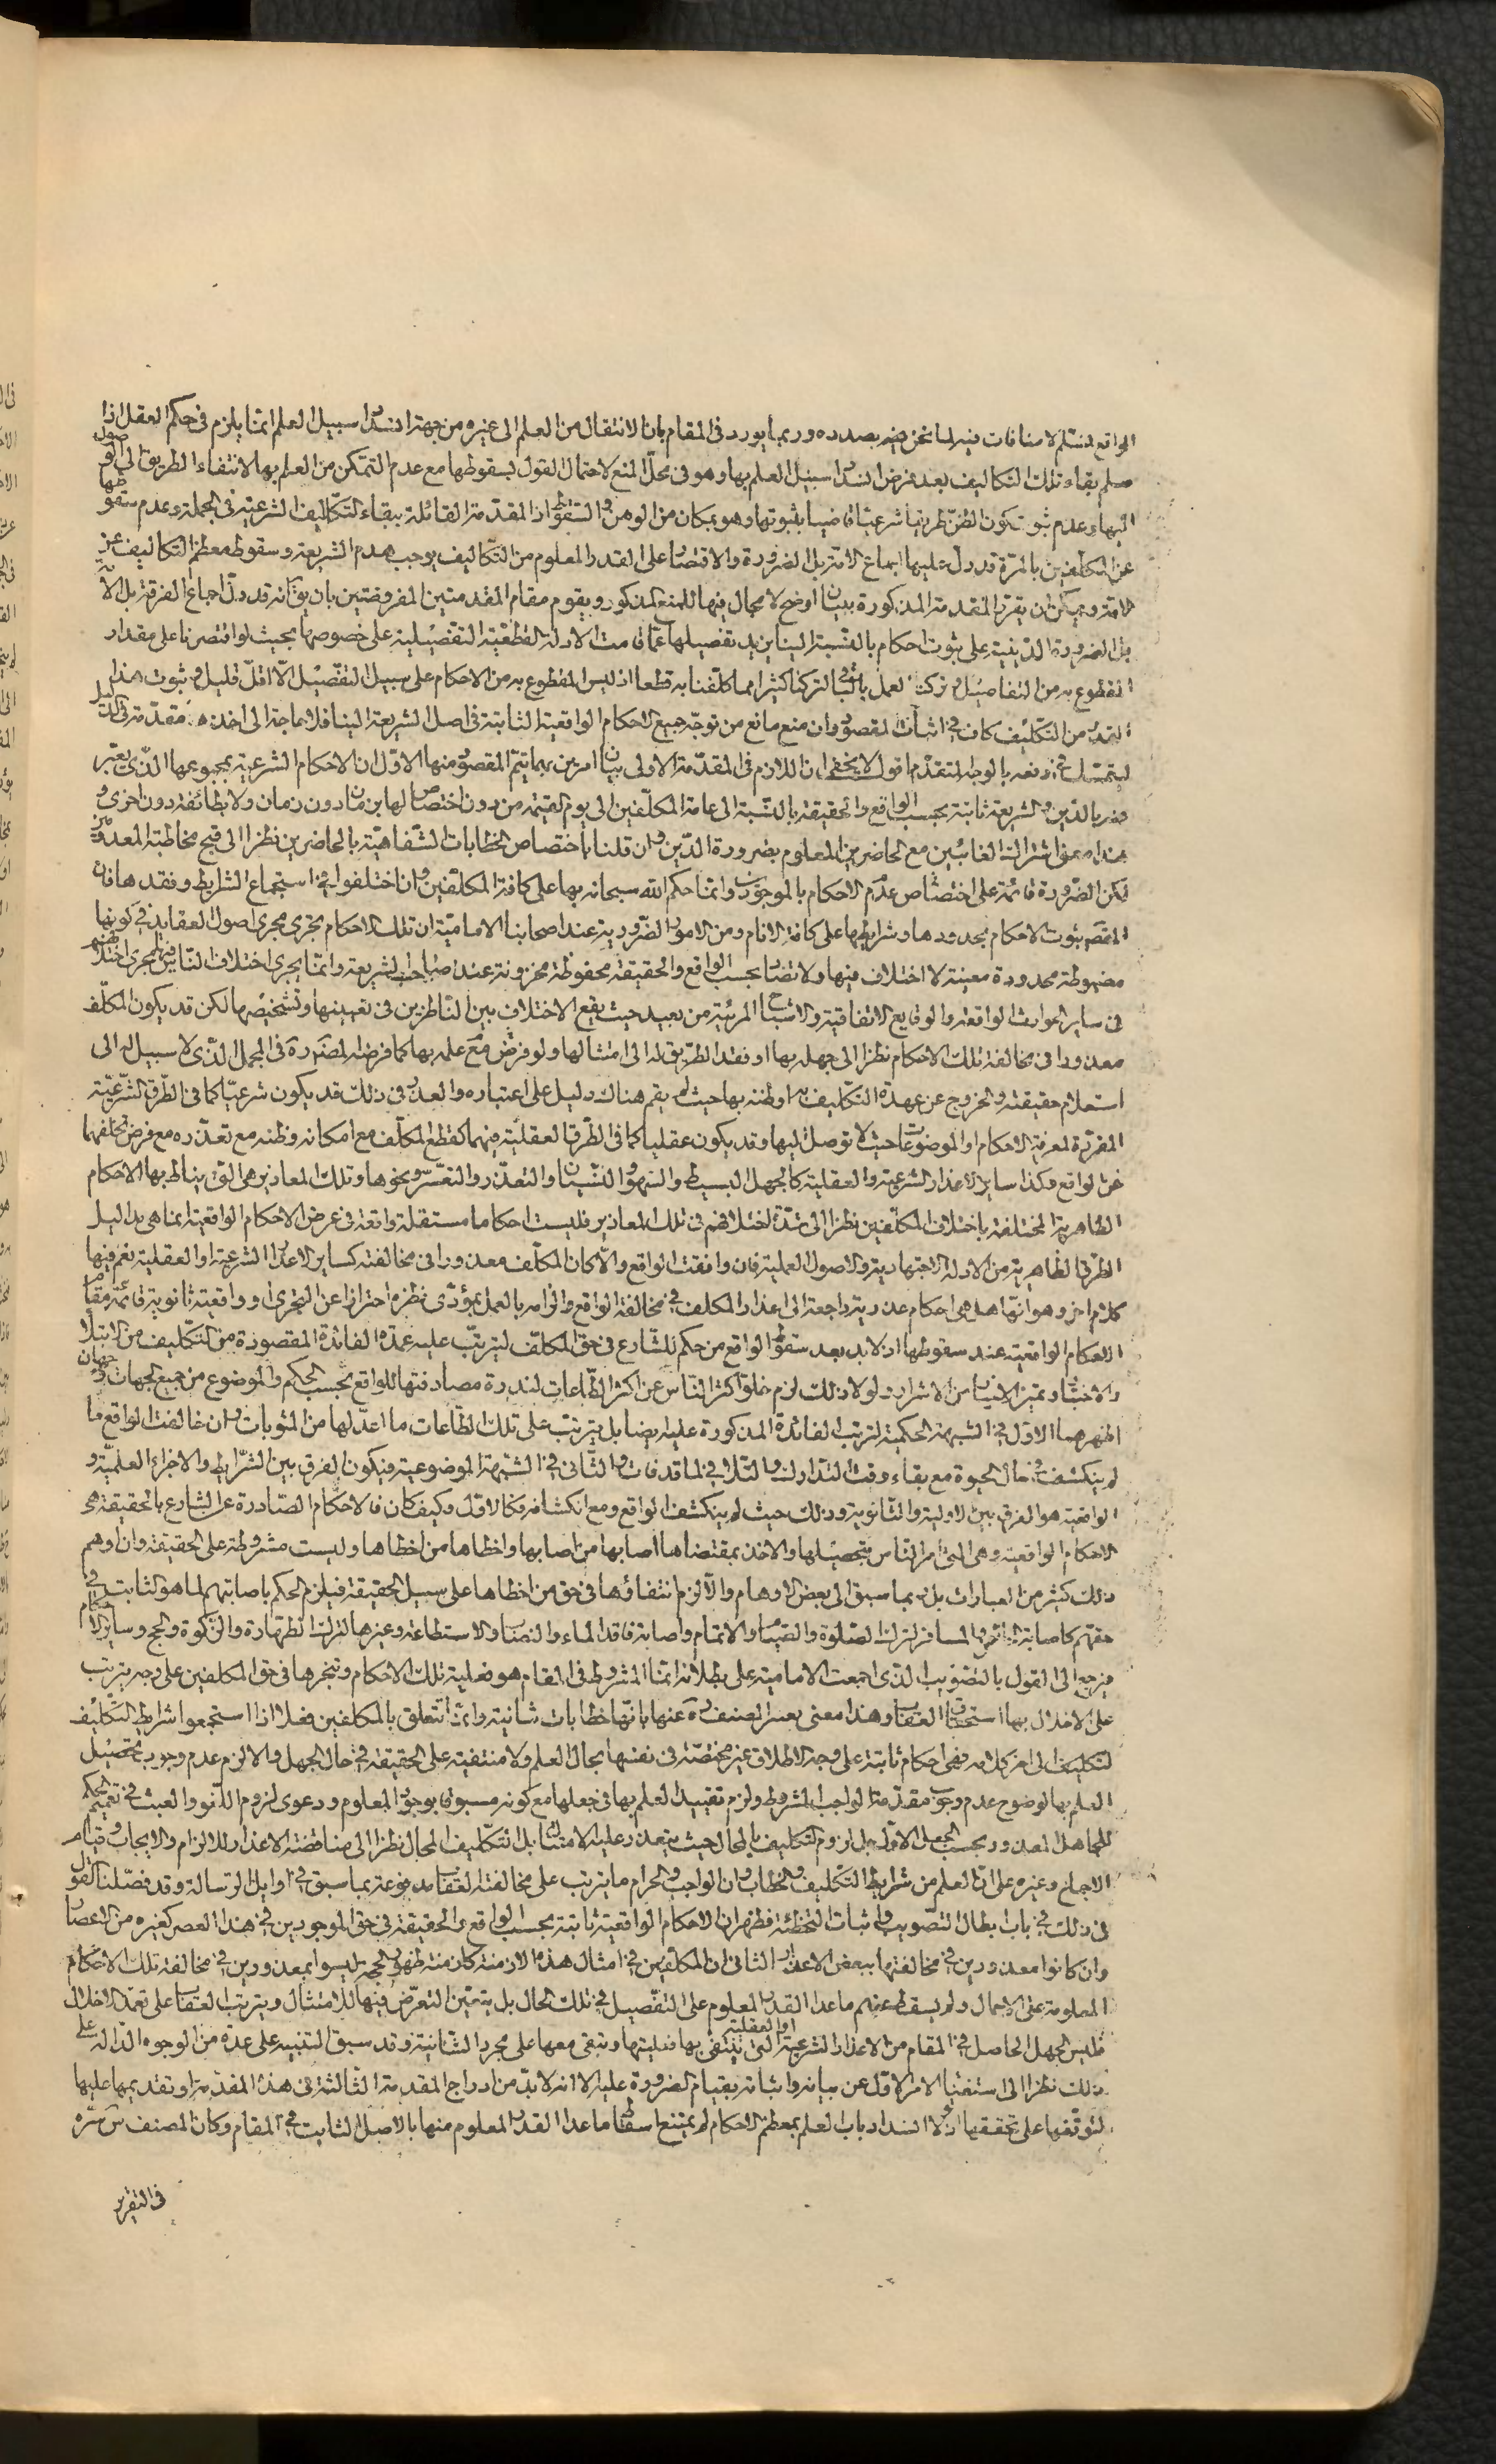 الواقع المسلم لا منافات فيه لما نحن فيه بصدده وربما يورد في المقام بان الانتقال من العلم الى غيره من جهة انسداد سبيل العلم انما يلزم في حكم العقل اذا
سلم بقاء تلك التكاليف بعد فرض انسداد سبيل العلم بها وهو في محل المنع لاحتمال القول بسقوطها مع عدم التمكن من العلم بها لانتفاء الطريق الى الوصول
اليها وعدم ثبوت كون الظن طريقا شرعيا قاضيا بثبوتها وهو بمكان من الوهن والسقوط اذ المقدمة القائلة ببقاء التكاليف الشرعية في الجملة وعدم سقوطها
عن المكلفين بالمرة قد دل عليها اجماع الامة بل الضرورة والاقتصار على القدر المعلوم من التكاليف يوجب هدم الشريعة وسقوط معظم التكاليف عن
الامة ويمكن ان يقرر المقدمة المذكورة ببيان اوضح لا مجال فيها للمنع المذكور ويقوم مقام المقدمتين المفروضتين بان يق انه قد دل اجماع الفرقة بل الامة
بل الضرورة الدينية على ثبوت احكام بالنسبة الينا يزيد تفصيلها عما قامت الادلة القطعية التفصيلية على خصوصها بحيث لو اقتصرنا على مقدار
المقطوع به من التفاصيل وتركت العمل بالباقي لتركنا كثيرا مما كلفنا به قطعا اذ ليس المقطوع به من الاحكام على سبيل التفصيل الا اقل قليل وثبوت هذا
القدر من التكليف كاف في اثبات المقصود وان منع مانع من توجه جميع الاحكام الواقعية الثابتة في اصل الشريعة الينا فلا حاجة الى اخذه مقدمة في الدليل
ليتمسك في دفعه بالوجه المتقدم اقول لا يخفى ان اللازم في المقدمة الاولى بيان امرين بهما يتم المقصود منها الاول ان الاحكام الشرعية بمجموعها الذي يعبر
عنه بالدين والشريعة ثابتة بحسب الواقع والحقيقة بالنسبة الى عامة المكلفين الى يوم القيمة من دون اختصاص لها بزمان دون زمان ولا بطائفة دون اخرى و
هذا معنى اشتراك الغائبين مع الحاضرين المعلوم بضرورة الدين وان قلنا باختصاص الخطابات الشفاهية بالحاضرين نظرا الى قبح مخاطبة المعدومين
لكن الضرورة قائمة على اختصاص عدم الاحكام بالموجودين وانما حكم الله سبحانه بها على كافة المكلفين وان اختلفوا في استجماع الشرايط وفقدها فان
المقصود ثبوت الاحكام بحدودها وشرايطها على كافة الانام ومن الامور الضرورية عند اصحابنا الامامية ان تلك الاحكام تجري مجرى اصول العقايد في كونها
مضبوطة محدودة معينة لا اختلاف فيها ولا تضاد بحسب الواقع والحقيقة محفوظة مخزونة عند صاحب الشريعة وانما يجري اختلاف الناس فيها مجرى اختلافهم
في ساير الحوادث الواقعة والوقايع الاتفاقية والاشباح المرئية من بعيد حيث يقع الاختلاف بين الناظرين في تعيينها وتشخيصها لكن قد يكون المكلف
معذورا في مخالفة تلك الاحكام نظرا الى جهله بها او فقد الطريق له الى امتثالها ولو فرض مع علمه بها كما فرضه لضرورة في المجمل الذي لا سبيل له الى
استعلام حقيقته والخروج عن عهدة التكليف به او ظنه بها حيث لم يقم هناك دليل على اعتباره والعذر في ذلك قد يكون شرعيا كما في الطرق الشرعية
المقررة لمعرفة الاحكام او الموضوعات حيث لا توصل اليها وقد يكون عقليا كما في الطرق العقلية فيهما كقطع المكلف مع امكانه وظنه مع تعذره مع فرض تخلفهما
عن الواقع وكذا ساير الاعذار الشرعية والعقلية كالجهل البسيط والسهو والنسيان والتعذر والتعسر ونحوها وتلك المعاذير هي التي يناط بها الاحكام
الظاهرية المختلفة باختلاف المكلفين نظرا الى شدة اختلافهم في تلك المعاذير فليست احكاما مستقلة واقعة في عرض الاحكام الواقعية انما هي بدلية
الطرق الظاهرية من الادلة الاجتهادية والاصول العملية فان وافقت الواقع والا كان المكلف معذورا في مخالفته كساير الاعذار الشرعية او العقلية نعم فيها
كلام اخر وهو انها هل هي احكام عذرية راجعة الى اعذار المكلف في مخالفة الواقع والزامه بالعمل بمؤدى نظره احترازا عن التجري او واقعية ثانوية قائمة مقام
الاحكام الواقعية عند سقوطها اذ لا بد بعد سقوط الواقع من حكم للشارع في حق المكلف ليترتب عليه عمدة الفائدة المقصودة من التكليف من الابتلاء
والاختبار وتميز الاخيار من الاشرار ولولا ذلك لزم خلو اكثر الناس عن اكثر الطاعات لندرة مصادفتها للواقع بحسب الحكم والموضوع من جميع الجهات وجهان
اظهرهما الاول في الشبهة الحكمية لترتب الفائدة المذكورة عليه ايضا بل يترتب على تلك الطاعات ما اعد لها من المثوبات وان خالفت الواقع ما
لم ينكشف في حال الحيوة مع بقاء وقت التدارك والتلافي لما قد فات والثاني في الشبهة الموضوعية فيكون الفرق بين الشرايط والاجزاء العلمية و
الواقعية هو الفرق بين الاولية والثانوية وذلك حيث لم ينكشف الواقع ومع انكشافه فكالاول وكيف كان فالاحكام الصادرة عن الشارع بالحقيقة هي
الاحكام الواقعية وهي التي امر الناس بتحصيلها والاخذ بمقتضاها اصابها من اصابها واخطاها من اخطاها وليست مشروطة على الحقيقة وان اوهم
ذلك كثير من العبارات بل ربما سبق الى بعض الاوهام والا لزم انتفاؤها في حق من اخطاها على سبيل الحقيقة فيلزم الحكم باصابتهم لما هو الثابت في
حقهم كاصابة الحاضر والمسافر لترك الصلوة والصيام والاتمام واصابة فاقد الماء والنصاب والاستطاعة وغيرها لترك الطهارة والزكوة والحج وساير الاحكام
فيرجع الى القول بالتصويب الذي اجمعت الامامية على بطلانه انما المشروط في المقام هو فعلية تلك الاحكام وتنجزها في حق المكلفين على وجه يترتب
على الاخلال بها استحقاق العقاب وهذا معنى تعبير المصنف ره عنها بانها خطابات شانية وانما تتعلق بالمكلفين فعلا اذا استجمعوا شرايط التكليف
لتكليف الى اخر كلامه فهي احكام ثابتة على وجه الاطلاق غير مختصة في نفسها بحال العلم ولا منتفية على الحقيقة في حال الجهل والا لزم عدم وجوب تحصيل
العلم بها لوضوح عدم وجوب مقدمة الواجب المشروط ولزم تقييد العلم بها في جعلها مع كونه مسبوقا بوجود المعلوم ودعوى لزوم اللغو والعبث في تعميم الحكم
للجاهل المعذور بحسب الجعل الاول بل لزوم التكليف بالمحال حيث يتعذر عليه الامتثال بل التكليف المحال نظرا الى مناقضة الاعذار للالزام والايجاب وقيام
الاجماع وغيره على ان العلم من شرايط التكليف والخطاب وان الواجب والحرام ما يترتب على مخالفته العقاب مدفوعة بما سبق في اوايل الرسالة وقد فصلنا القول
في ذلك في باب ابطال التصويب واثبات التخطئة فظهر ان الاحكام الواقعية ثابتة بحسب الواقع والحقيقة في حق الموجودين في هذا العصر كغيره من الاعصار
وان كانوا معذورين في مخالفتها ببعض الاعذار الثاني ان المكلفين في امثال هذه الازمنة كازمنة ظهور الحجة ليسوا بمعذورين في مخالفة تلك الاحكام
المعلومة على الاجمال ولم يسقط عنهم ما عدا القدر المعلوم على التفصيل في تلك الحال بل يتعين التعرض فيها للامتثال ويترتب العقاب على تعمد الاخلال
فليس الجهل الحاصل في المقام من الاعذار الشرعية او العقلية التي ينتفي بها فعليتها وتبقى معها على مجرد الشانية وقد سبق التنبيه على عدة من الوجوه الدالة على
ذلك نظرا الى استغناء الامر الاول عن بيانه واثباته بقيام الضرورة عليه الا انه لا بد من ادراج المقدمة الثالثة في هذه المقدمة او تقديمها عليها
لتوقفها على تحققها اذ لولا انسداد باب العلم بمعظم الاحكام لم يمتنع اسقاط ما عدا القدر المعلوم منها بالاصل الثابت في المقام وكان المصنف قدس سره
في التقرير